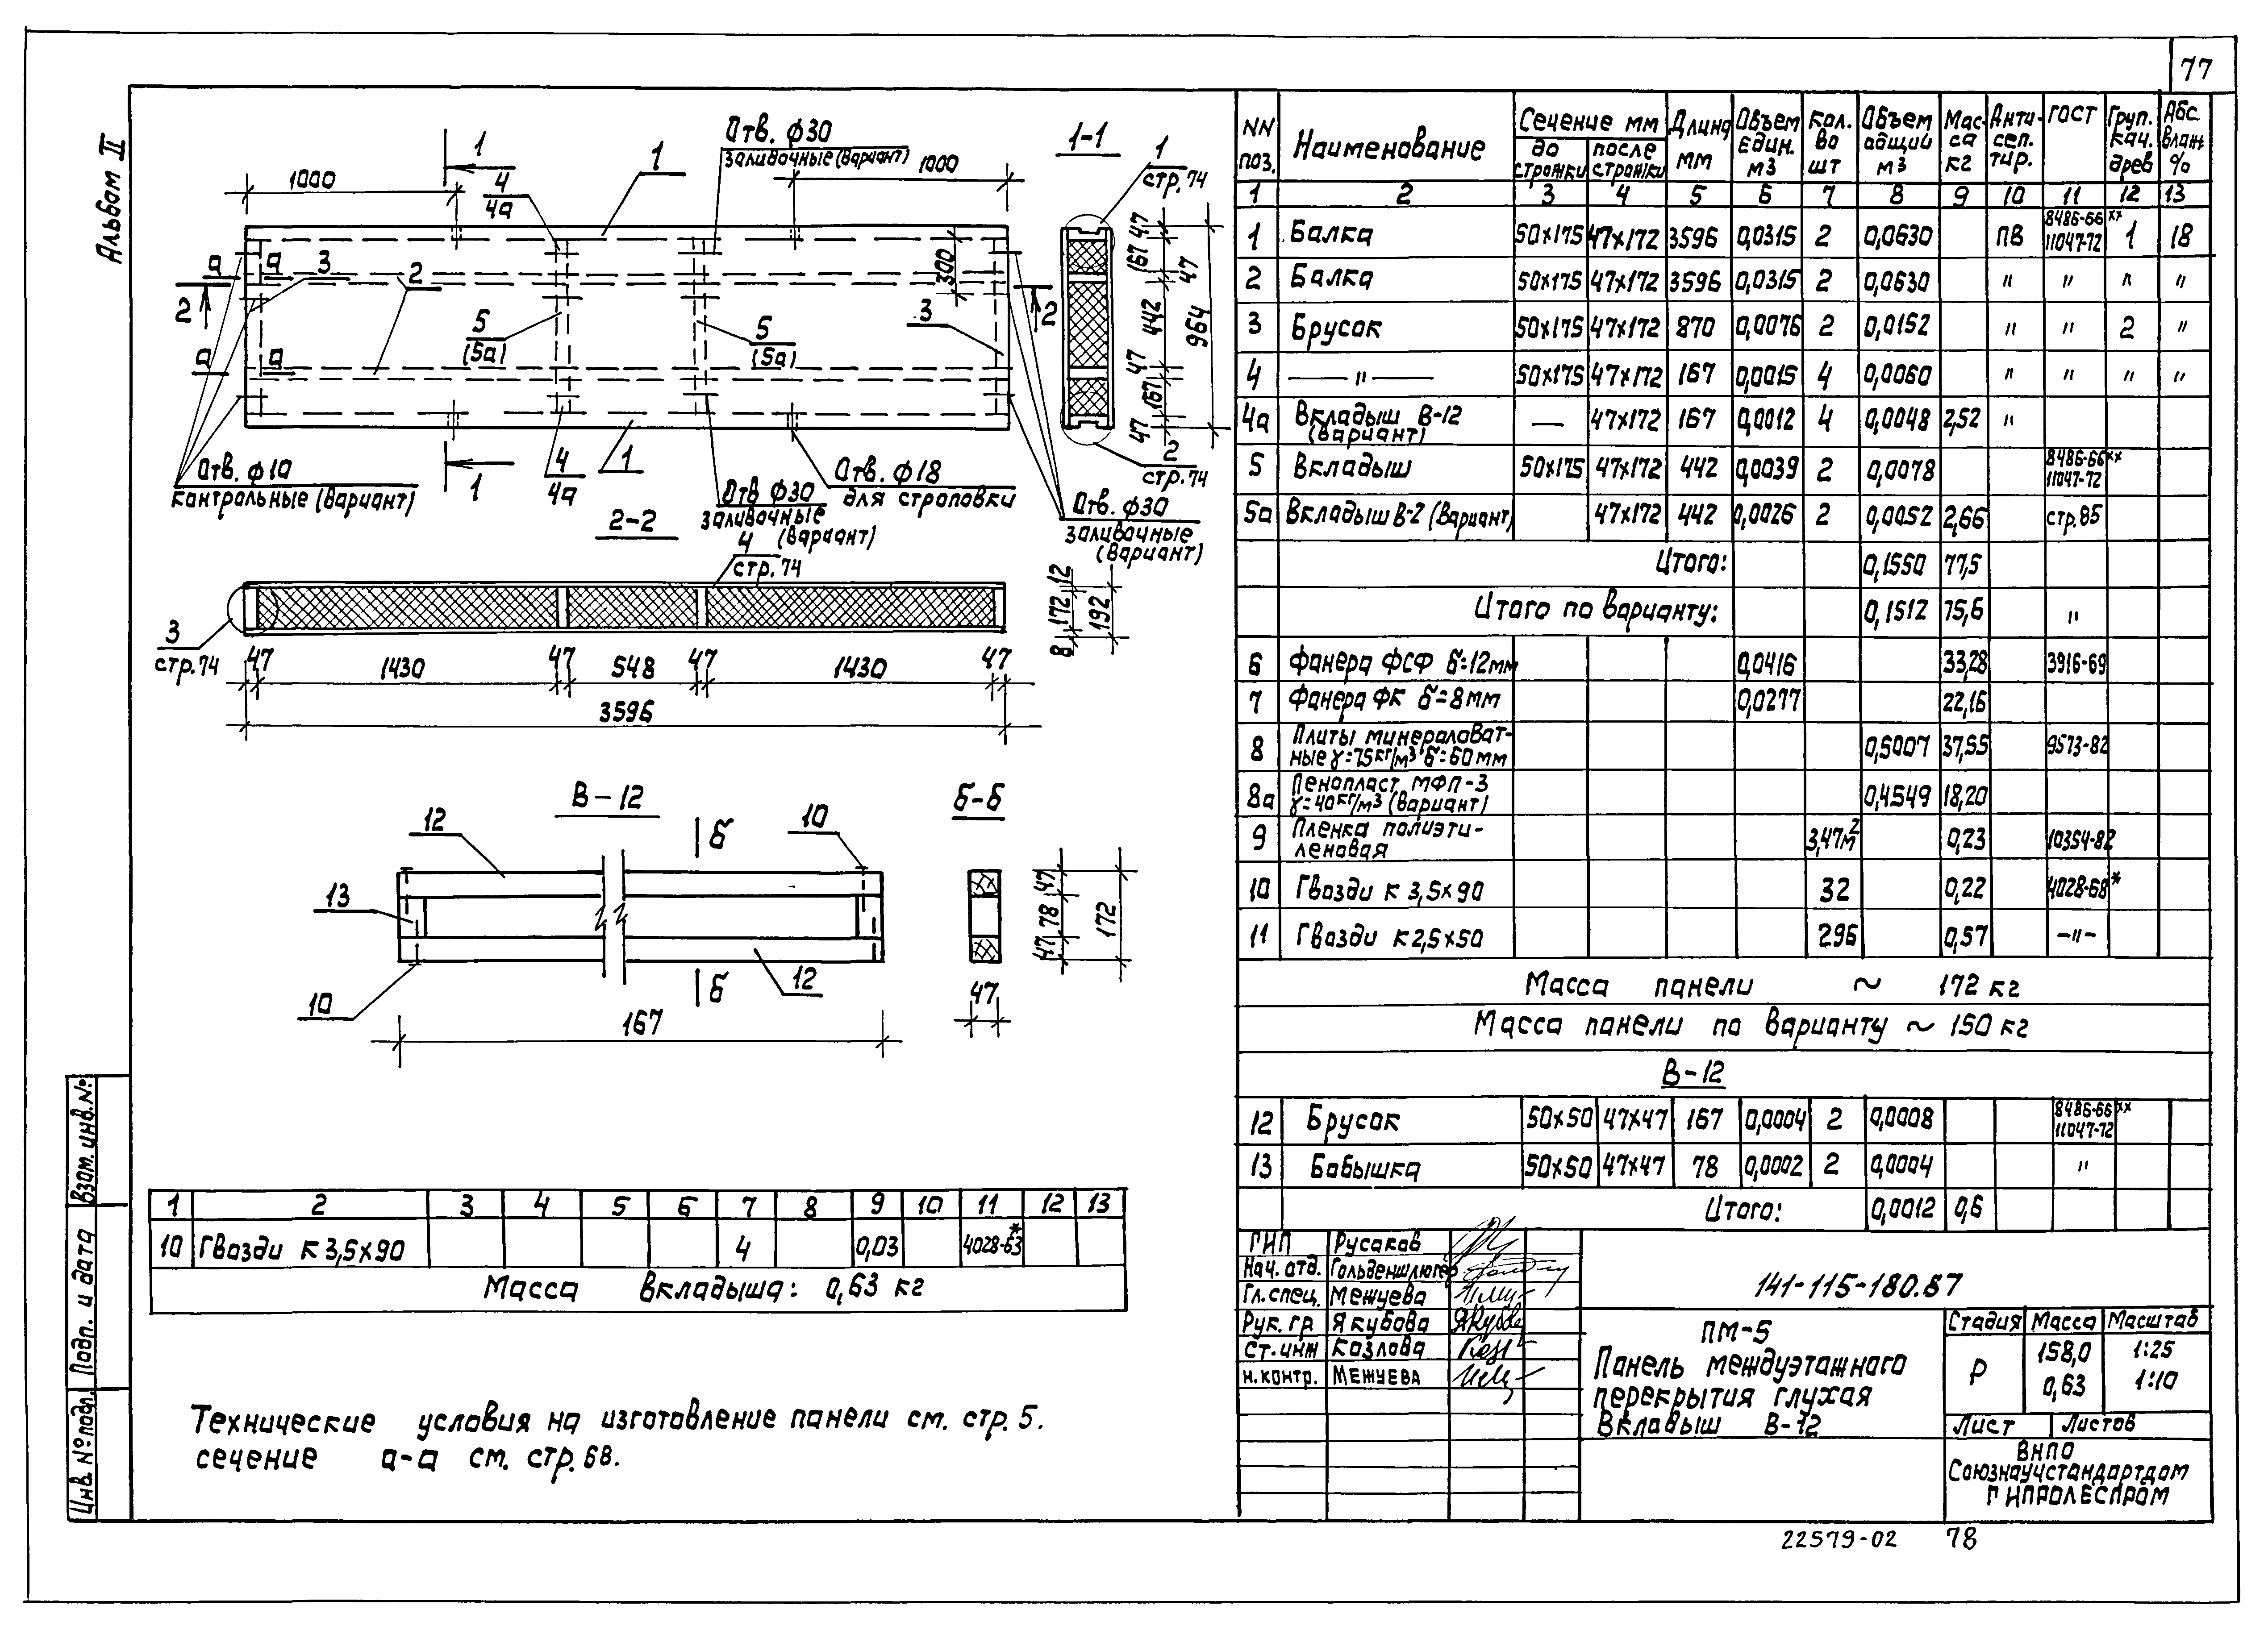 77
Альбом II
1
1000
4
4а
1
Отв. ф30
заливочные (вариант)
1000
1-1
1
стр. 74
а
а
3
2
2
5
(5а)
5
(5а)
300
3
2
а
а
47
167
47
442
964
47
167
47
Отв. ф10
контрольные (вариант)
1
4
4а
1
Отв ф30
заливочные
(вариант)
Отв. ф18
для строповки
2
стр. 74
Отв. ф30
заливочные
(вариант)
2-2
4
стр. 74
3
стр. 74
47
1430
47
548
47
1430
47
3596
12
172
8
192
В-12
12
10
13
10
12
б
б
167
б-б
47
78
47
172
47
NN поз. Наименование Сечение мм до строжки после строжки Длина мм Объем един. м3 Кол. во шт Объем общий м3 Масса кг Антисептир. ГОСТ Груп. кач. древ Абс. влаж %
1 2 3 4 5 6 7 8 9 10 11 12 13
1 Балка 50×175 47×172 3596 0,0315 2 0,0630 ПВ 8486-66×× 11047-72 1 18
2 Балка 50×175 47×172 3596 0,0315 2 0,0630 " " " "
3 Брусок 50×175 47×172 870 0,0076 2 0,0152 " " 2 "
4 — " — 50×175 47×172 167 0,0015 4 0,0060 " " " "
4а Вкладыш В-12 (вариант) — 47×172 167 0,0012 4 0,0048 2,52 "
5 Вкладыш 50×175 47×172 442 0,0039 2 0,0078 8486-66×× 11047-72
5а Вкладыш В-2 (вариант) 47×172 442 0,0026 2 0,0052 2,66 стр. 85
Итого: 0,1550 77,5
Итого по варианту: 0,1512 75,6 "
6 Фанера ФСФ б=12мм 0,0416 33,28 3916-69
7 Фанера ФК б=8мм 0,0277 22,16
8 Плиты минераловат-
ные γ=75кг/м3 б=60мм 0,5007 37,55 9573-82
8а Пенопласт МФП-3
γ=40кг/м3 (вариант) 0,4549 18,20
9 Пленка полиэти-
леновая 3,47м2 0,23 10354-82
10 Гвозди К 3,5×90 32 0,22 4028-68*
11 Гвозди К2,5×50 296 0,57 —"—
Масса панели ~ 172 кг
Масса панели по варианту ~ 150 кг
В-12
12 Брусок 50×50 47×47 167 0,0004 2 0,0008 8486-66×× 11047-72
13 Бобышка 50×50 47×47 78 0,0002 2 0,0004 "
Итого: 0,0012 0,6
1 2 3 4 5 6 7 8 9 10 11 12 13
10 Гвозди К3,5×90 4 0,03 4028-63*
Масса вкладыша: 0,63 кг
Технические условия на изготовление панели см. стр. 5.
сечение а-а см. стр. 68.
Взам. инв. №
Подп. и дата
Инв. № подл.
ГИП Русаков
Нач. отд. Гольденшлюгер
Гл. спец. Межуева
Рук. гр Якубова
Ст. инж Козлова
Н. контр. Межуева
141-115-180.87
ПМ-5
Панель междуэтажного
перекрытия глухая
Вкладыш В-12
Стадия Масса Масштаб
Р 158,0 1:25
0,63 1:10
Лист Листов
ВНПО
Союзнаучстандартдом
Гипролеспром
22579-02 78